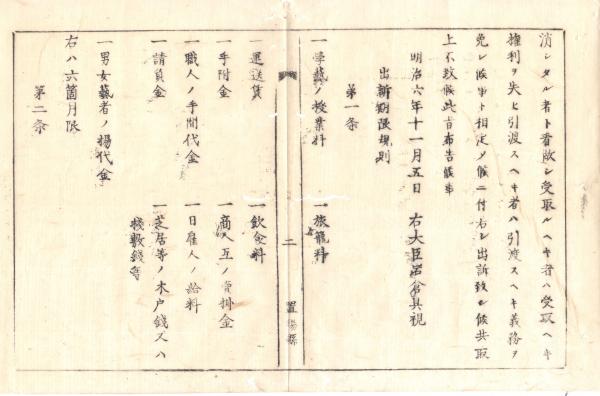 消シタル者ト看做シ受取ルヘキ者ハ受取ヘキ
権利ヲ失ヒ引渡スヘキ者ハ引渡スヘキ義務ヲ
免レ候事ト相定メ候ニ付右ニ出訴致シ候共取
上不致候此旨布告候事
明治六年十一月五日 右大臣岩倉具視
出訴期限規則
第一条
一學藝ノ授業料 一旅籠料
二 置賜縣
一運送賃 一飲食料
一手附金 一商人互ノ賣掛金
一職人ノ手間代金 一日雇人ノ給料
一請負金 一芝居等ノ木戸錢又ハ
棧敷錢等
一男女藝者ノ揚代金
右ハ六箇月限
第二条